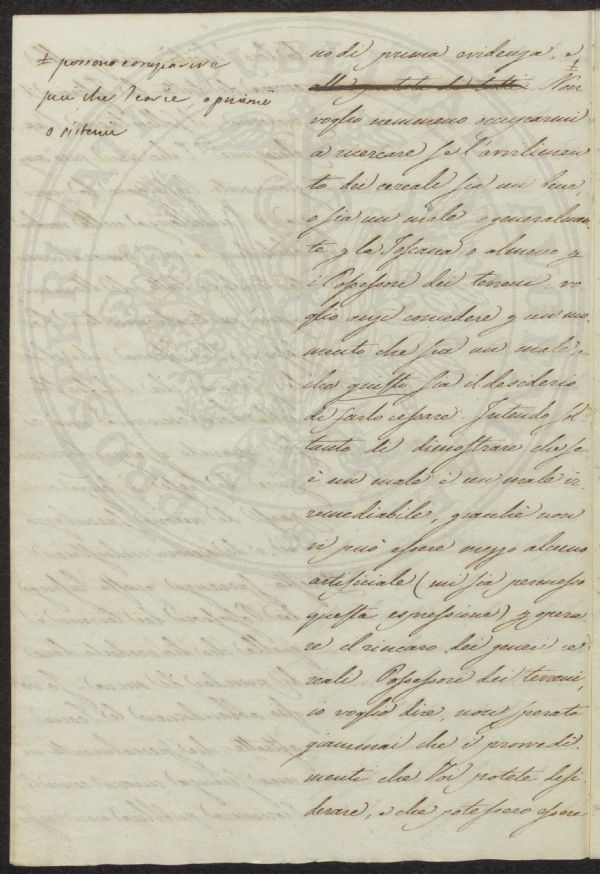 ± possono comparire
più che teorie opinioni
o sistemi
no di prima evidenza, e
±
Non
voglio nemmeno occuparmi
a ricercare se l'avvilimen
to dei cereali sia un bene,
o sia un male o generalmen
te p la Toscana o almeno p
i Possessori dei terreni. vo
glio anzi concedere p un mo
mento che sia un male, e
che questo sia il desiderio
di farlo cessare. Intendo sol
tanto di dimostrare che se
è un male è un male ir
remediabile, giacchè non
vi può essere mezzo alcuno
artificiale (mi sia permesso
questa espressione) p opera
re il rincaro dei generi ce
reali. Possessori dei terreni,
io voglio dire, non sperate
giammai che i provvedi
menti che Voi potete desi
derare, e che potessero essere